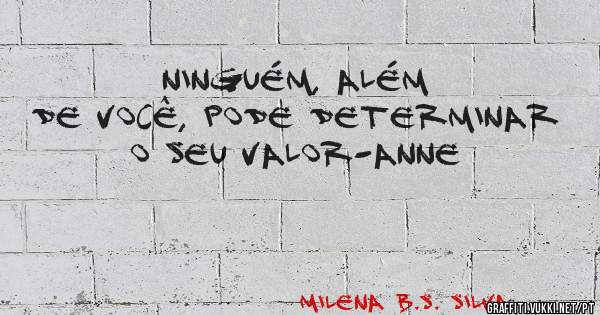 NINGUÉM, ALÉM
DE VOCÊ, PODE DETERMINAR
O SEU VALOR-ANNE
MILENA B.S. SILVA
GRAFFITI.VUKKI.NET/PT